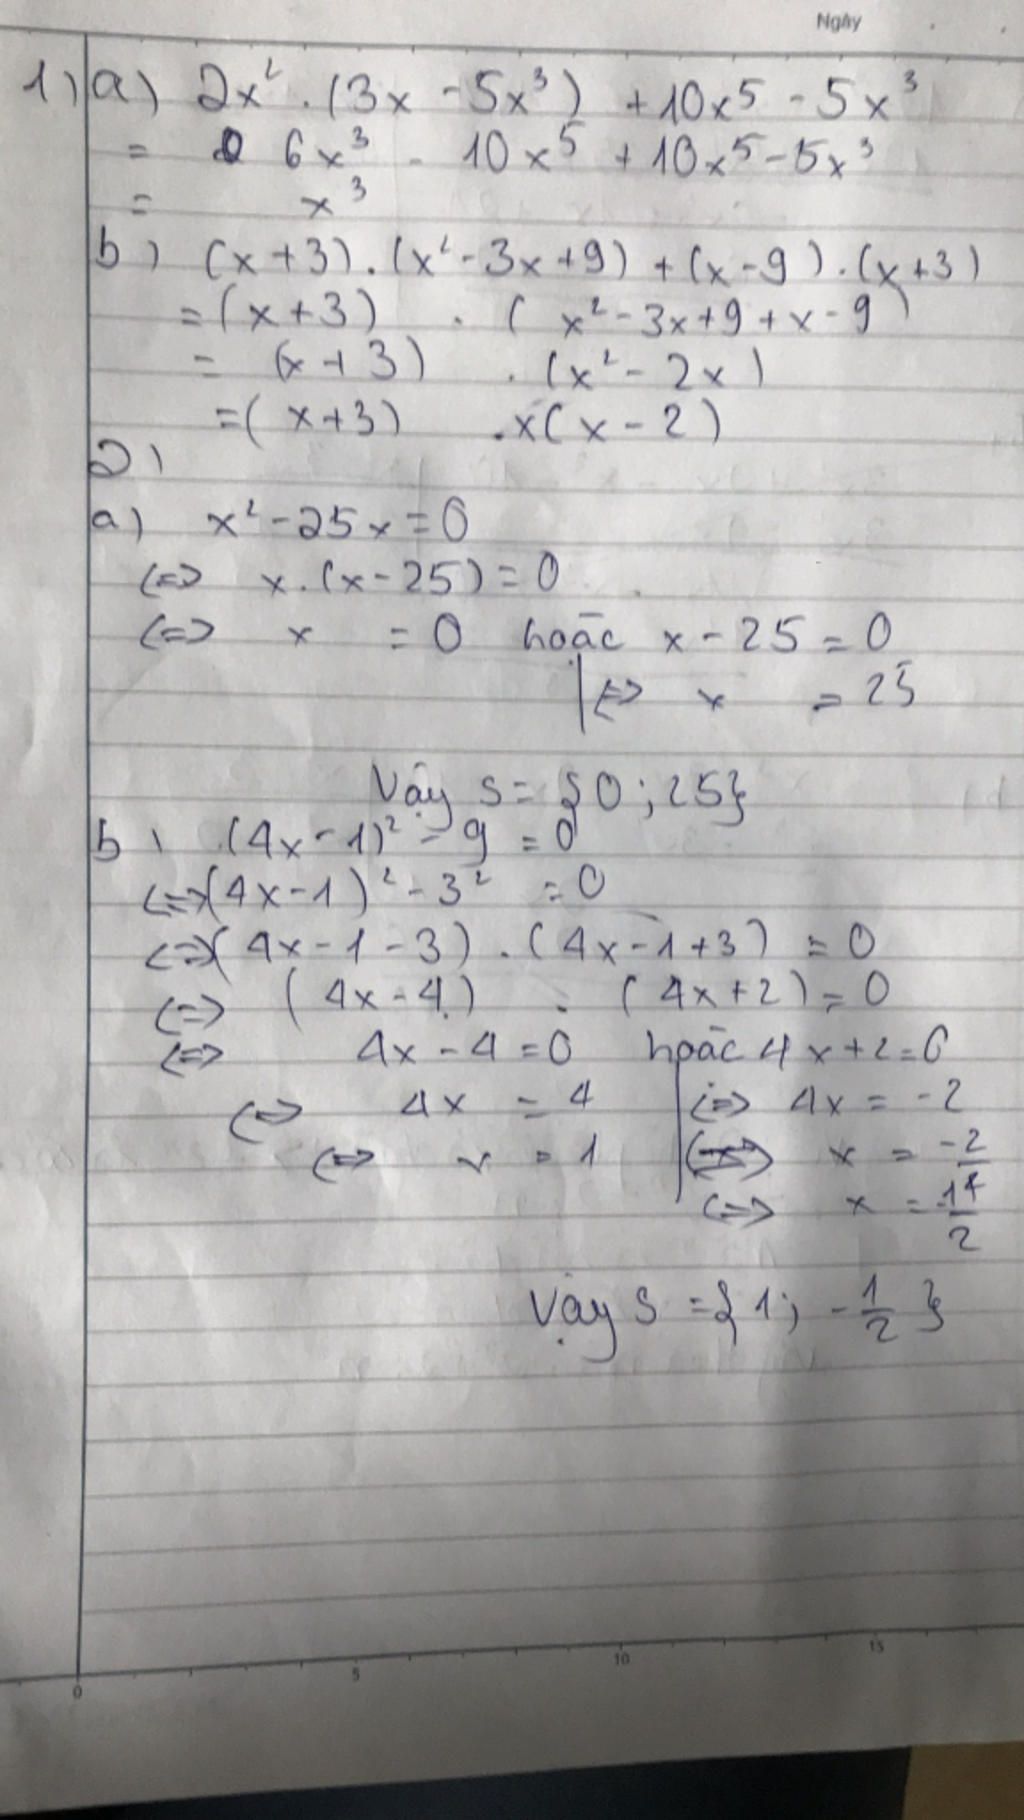 Ngày
1) a) 2x² . (3x - 5x³) + 10x⁵ - 5x³
= 6x³ - 10x⁵ + 10x⁵ - 5x³
= x³
b) (x+3).(x²-3x+9)+(x-9).(x+3)
= (x+3) . (x²-3x+9+x-9)
= (x+3) . (x²-2x)
= (x+3) .x(x-2)
2)
a) x²-25x=0
<=> x.(x-25)=0
<=> x = 0 hoặc x-25=0
<=> x = 25
Vậy S = {0;25}
b) (4x-1)² - 9 = 0
<=> (4x-1)² - 3² = 0
<=> (4x-1-3).(4x-1+3) = 0
<=> (4x-4) . (4x+2) = 0
<=> 4x-4=0 hoặc 4x+2=0
<=> 4x = 4 | <=> 4x = -2
<=> x = 1 | <=> x = -2
<=> x = -1/2
Vậy S = {1; -1/2}
0 5 10 15